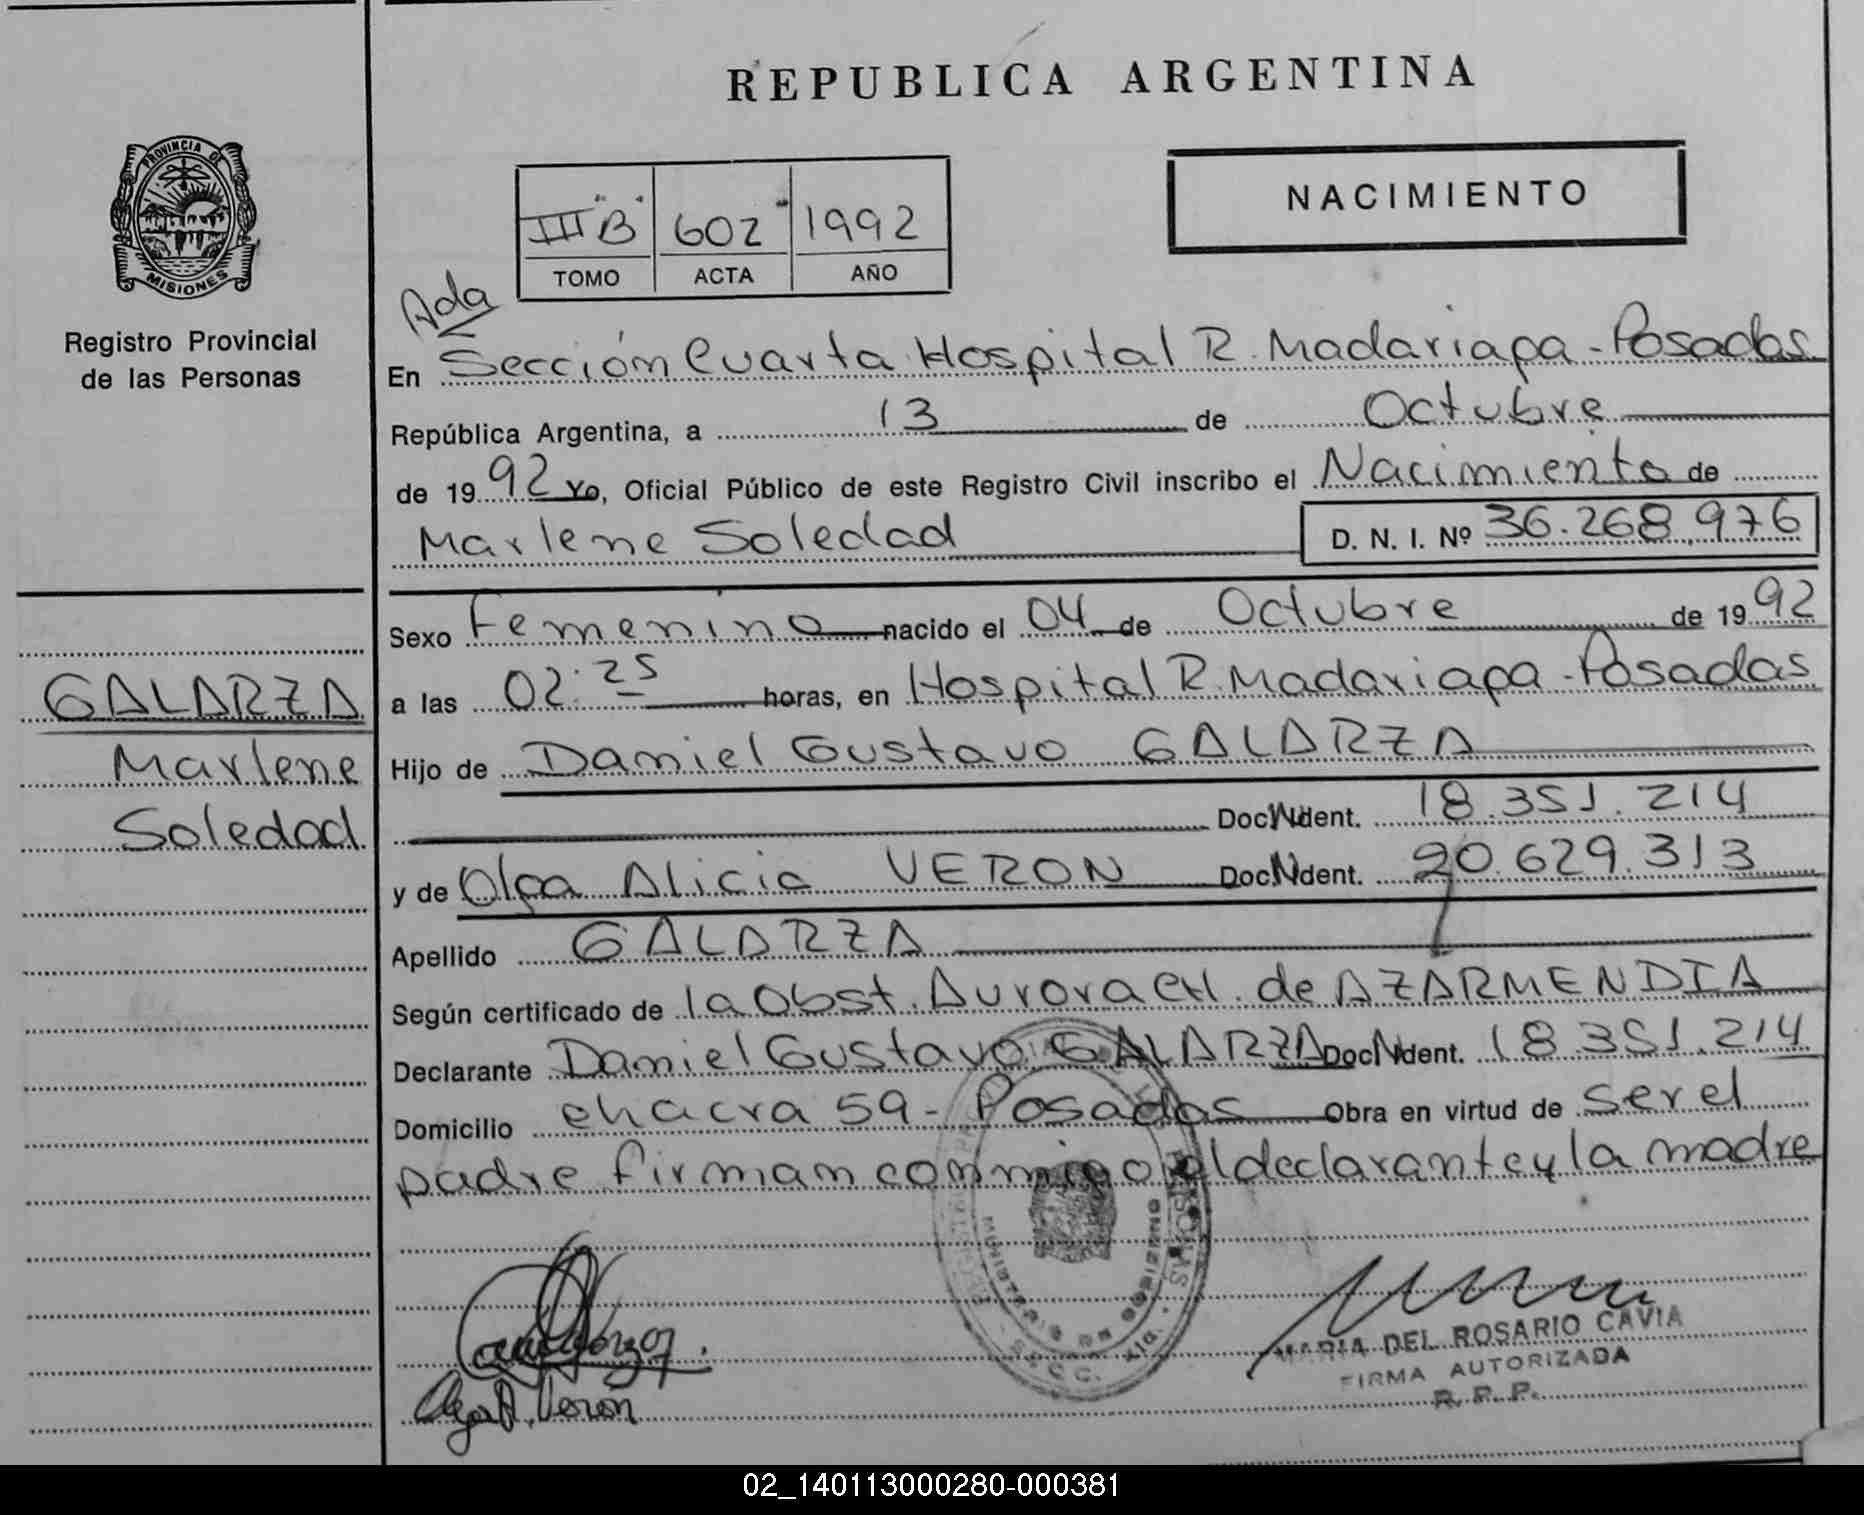 REPUBLICA ARGENTINA
NACIMIENTO
PROVINCIA DE
MISIONES
Registro Provincial
de las Personas
III "B" 602 1992
TOMO ACTA AÑO
Ada
En Sección Cuarta Hospital R. Madariaga - Posadas
República Argentina, a 13 de Octubre
de 1992 Yo, Oficial Público de este Registro Civil inscribo el Nacimiento de
Marlene Soledad D. N. I. Nº 36.268.976
Sexo Femenino nacido el 04 de Octubre de 1992
a las 02:25 horas, en Hospital R. Madariaga - Posadas
Hijo de Daniel Gustavo GALARZA
Doc. Ident. 18.351.214
y de Olga Alicia VERON Doc. Ident. 20.629.313
Apellido GALARZA
Según certificado de la Obst. Aurora CH. de AZARMENDIA
Declarante Daniel Gustavo GALARZA Doc. Ident. 18.351.214
Domicilio chacra 59 - Posadas Obra en virtud de ser el
padre firman conmigo el declarante y la madre
GALARZA
Marlene
Soledad
MINISTERIO DE GOBIERNO
Olga A. Veron
MARIA DEL ROSARIO CAVIA
FIRMA AUTORIZADA
R. P. P.
02_140113000280-000381